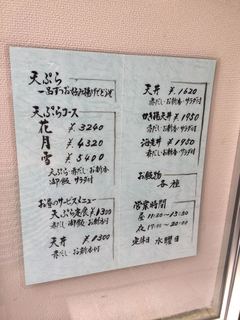 天ぷら
一品ずつお好み揚げどうぞ
天ぷらコース
花 ¥3240
月 ¥4320
雪 ¥5400
天ぷら・赤だし・お新香
御飯 サラダ付
お昼のサービスメニュー
天ぷら定食 ¥1300
赤だし 御飯 お新香付
天丼 ¥1300
赤だし・お新香付
天丼 ¥1620
赤だし・お新香・サラダ付
かき揚天丼 ¥1950
赤だし・お新香・サラダ付
海老丼 ¥1950
赤だし・お新香・サラダ付
お飲物
各種
営業時間
昼 11:30~13:30
夜 17:00~20:00
定休日 水曜日